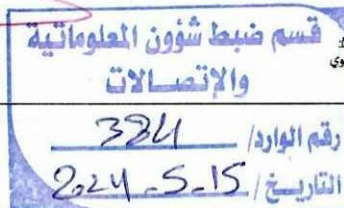 قسم ضبط شؤون المعلوماتية
والإتصالات
رقم الوارد/ 384
التاريخ / 2024-5-15